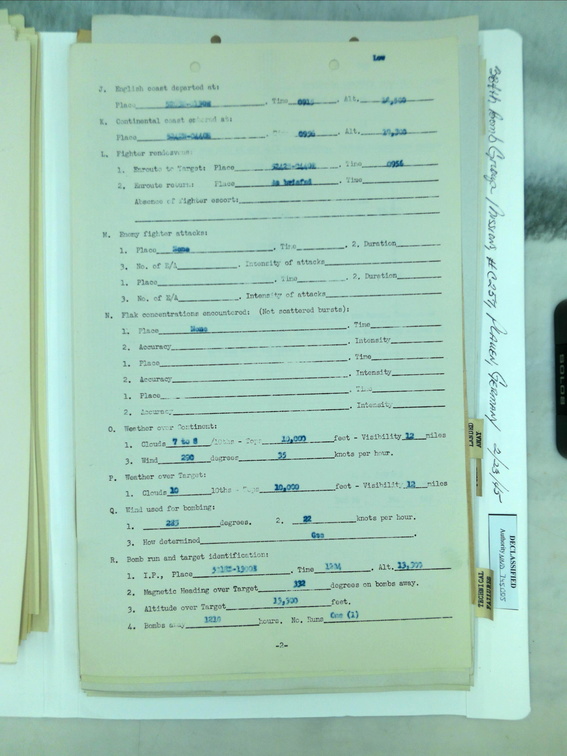 Low
J. English coast departed at:
Place . Time 0915 . Alt.
K. Continental coast entered at:
Place . Time 0956 . Alt.
L. Fighter rendezvous:
1. Enroute to Target: Place , Time 0956
2. Enroute return: Place As briefed , Time
Absence of fighter escort:
M. Enemy fighter attacks:
1. Place None , Time . 2. Duration
3. No. of E/A . Intensity of attacks
1. Place , Time . 2. Duration
3. No. of E/A . Intensity of attacks
N. Flak concentrations encountered: (Not scattered bursts):
1. Place None . Time
2. Accuracy . Intensity
1. Place . Time
2. Accuracy . Intensity
1. Place . Time
2. Accuracy . Intensity
O. Weather over Continent:
1. Clouds 7 to 8 /10ths - Tops 10,000 feet - Visibility 12 miles
3. Wind 290 degrees 35 knots per hour.
P. Weather over Target:
1. Clouds 10 10ths - Tops 10,000 feet - Visibility 12 miles
Q. Wind used for bombing:
1. 285 degrees. 2. 22 knots per hour.
3. How determined Gee .
R. Bomb run and target identification:
1. I.P., Place , Time , Alt.
2. Magnetic Heading over Target 332 degrees on bombs away.
3. Altitude over Target feet.
4. Bombs away 1210 hours. No. Runs One (1)
-2-
384th Bomb Group / Mission #C257, Plauen, Germany 2/23/45
DECLASSIFIED
Authority
TECHNICAL